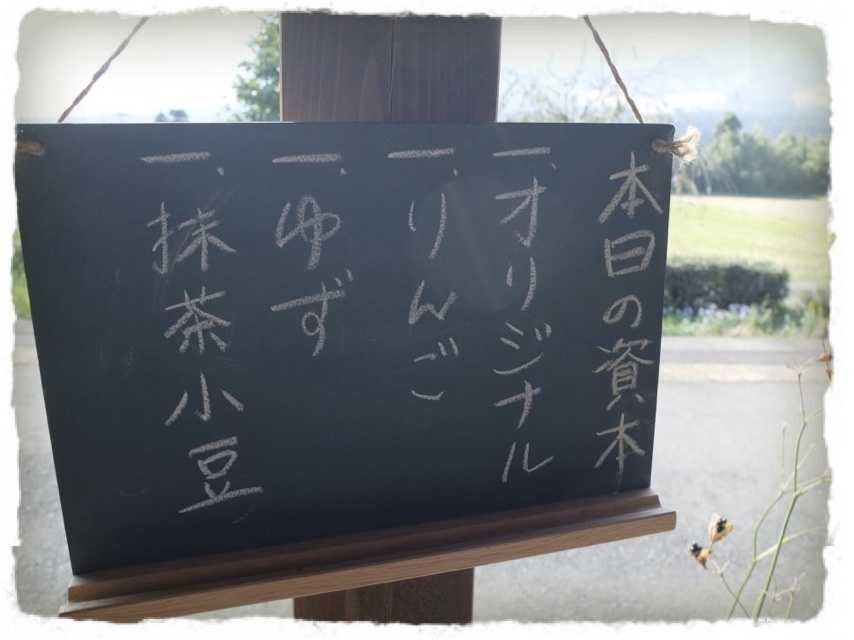 本日の資本
一、オリジナル
一、りんご
一、ゆず
一、抹茶小豆